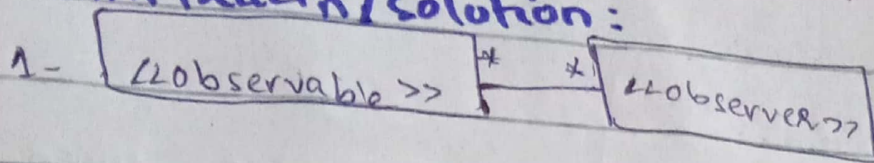 /solution:
1- <<observable>> * * <<observer>>